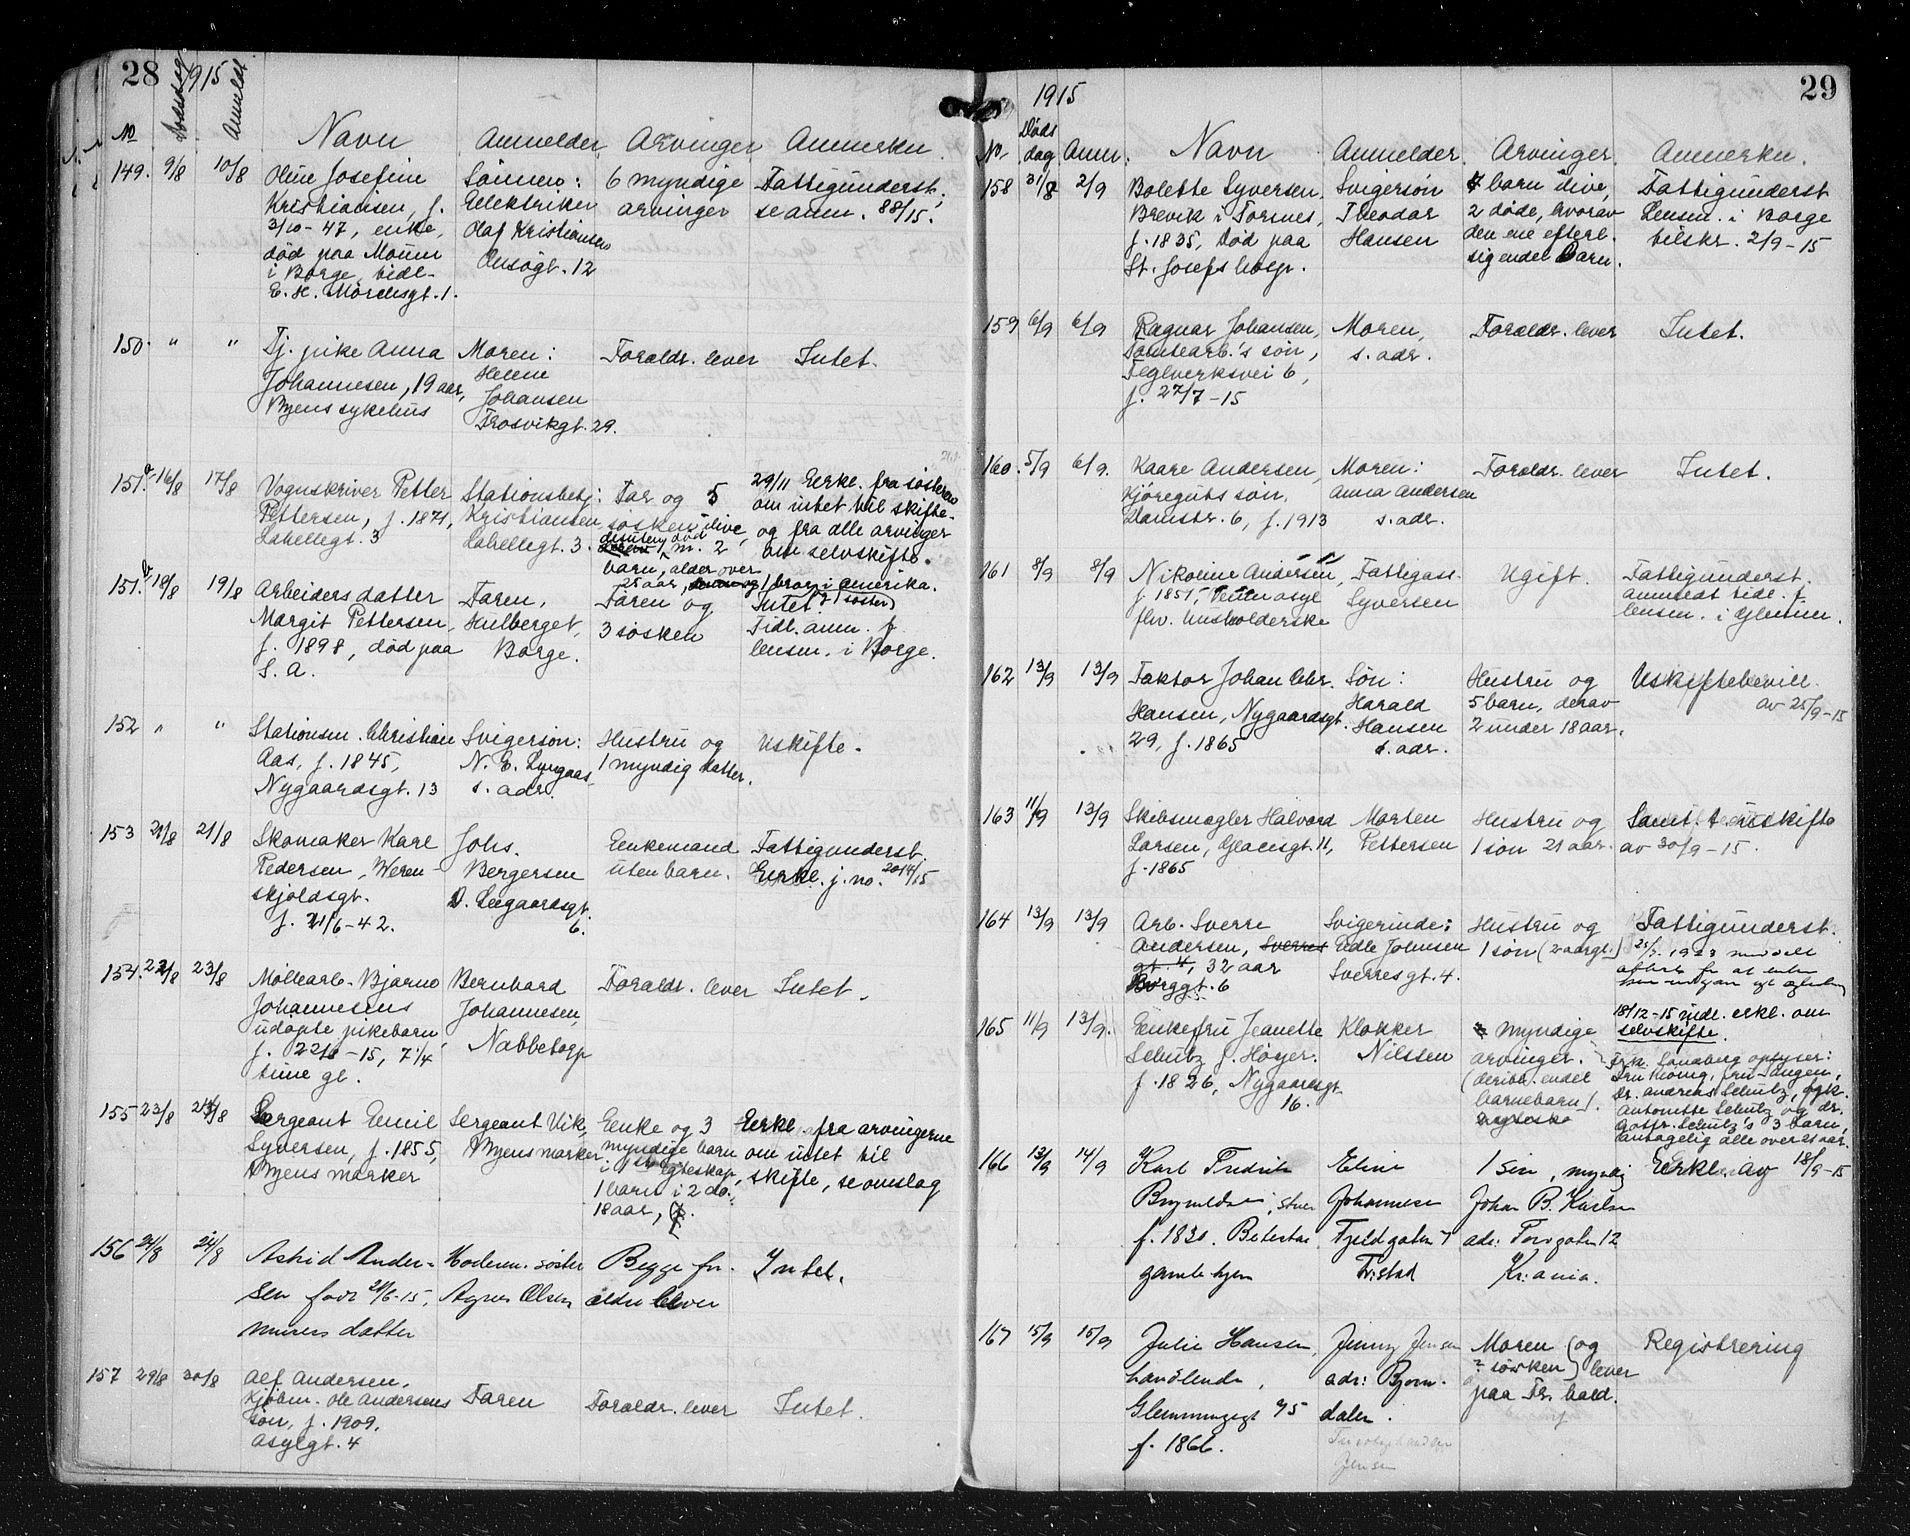 28
1915
No
Dødsdag
Anmeldt
Navn
Anmelder
Arvinger
Anmerkn.
149. 9/8 10/8
Oline Josefine
Kristiansen, f.
3/10-47, enke,
død paa Moum
i Borge, tidl.
E. H. Mørchsgt. 1.
Sønnen:
Elektriker
Olaf Kristiansen
Ensøgt. 12
6 myndige
arvinger
Fattigunderst.,
se anm. 88/15.
150. " "
Tj. pike Anna
Johannesen, 19 aar,
Byens sykehus
Moren:
Helene
Johansen
Trosvikgt. 29.
Forældr. lever
Intet.
151.a 16/8 17/8
Vognskriver Petter
Pettersen, f. 1871,
Labellegt. 3
Stationsbetj:
Kristiansen,
Labellegt. 3.
Far og 5
søsken ilive,
desuten død
1, m. 2
barn, alder over
25 aar, 1 bror i Amerika.
29/11 Erkl. fra søsteren
om intet til skifte
og fra alle arvinger
om selvskifte.
151.b 18/8 19/8
Arbeiders datter
Margit Pettersen,
f. 1898, død paa
S. A.
Faren,
Hulberget,
Borge.
Faren og
3 søsken
Intet.
(søster)
Tidl. anm. f.
lensm. i Borge.
152 " "
Stationsm. Christian
Aas, f. 1845,
Nygaardsgt. 13
Svigersøn:
N. E. Lyngaas
s. adr.
Hustru og
1 myndig datter.
Uskifte.
153 21/8 21/8
Skomaker Karl
Pedersen, Weren-
skjoldsgt.
f. 21/6-42.
Johs.
Bergersen
O. Leegaardsgt.
6.
Enkemand
uten barn.
Fattigunderst.
Erkl. j. no. 2014/15
154. 22/8 23/8
Møllearb. Bjarne
Johannesens
udøpte pikebarn,
f. 22/8-15, 7 1/4
time gl.
Bernhard
Johannesen,
Nabbetorp
Forældr. lever
Intet.
155 23/8 24/8
Sergeant Emil
Syversen, f. 1855,
Byens marker
Sergeant Vik,
Byens marker
Enke og 3
myndige barn
i 1ste egteskap,
1 barn i 2 do.,
18 aar,
Erkl. fra arvingerne
om intet til
skifte, se omslag
156 24/8 24/8
Astrid Ander-
sen født 20/6-15,
murers datter
Moderen. søster
Agnes Olsen
Begge for-
ældre lever
Intet.
157 29/8 30/8
Alf Andersen,
Kjøbm. Ole Andersens
søn, f. 1909,
Asylgt. 4
Faren
Forældr. lever
Intet.
29
1915
No
Døds
dag
Anm.
Navn
Anmelder
Arvinger
Anmerkn.
158 31/8 2/9
Bolette Syversen,
Brevik i Torsnes,
f. 1835, Død paa
St. Josefs hosp.
Svigersøn
Theodor
Hansen
7 barn ilive,
2 døde, hvorav
den ene efterl.
sig endel barn.
Fattigunderst
Lensm. i Borge
tilskr. 2/9-15
159 6/9 6/9
Ragnar Johansen,
Tomtearb.'s søn,
Teglverksvei 6,
f. 27/7-15
Moren,
s. adr.
Forældr. lever
Intet.
160. 5/9 6/9.
Kaare Andersen,
Kjøreguts søn,
Damstr. 6, f. 1913
Moren:
Anna Andersen
s. adr.
Forældr. lever
Intet.
161 8/9 8/9
Nikoline Andersen,
f. 1851, asyl
fhv. husholderske
Fattigass.
Syversen
Ugift.
Fattigunderst.
Anmeldt tidl. f.
lensm. i Glemmen.
162 13/9 13/9
Faktor Johan Chr.
Hansen, Nygaardsgt.
29, f. 1865
Søn:
Harald
Hansen
s. adr.
Hustru og
5 barn, derav
2 under 18 aar.
Uskiftebevill.
av 25/9-15
163 11/9 13/9
Skibsmægler Halvard
Larsen, Glacisgt. 11,
f. 1865
Morten
Pettersen
Hustru og
1 søn 21 aar.
Samt. t. uskifte
av 30/9-15.
164 13/9 13/9
Arb. Sverre
Andersen, Sverres
gt. 4, 32 aar
Borggt. 6
Svigerinde:
Edle Johnsen
Sverresgt. 4.
Hustru og
1 søn (2 aar gl.)
Fattigunderst.
1923
165 11/9 13/9.
Enkefru Jeanette
Schutz f. Høyer.
f. 1826, Nygaardsgt.
16.
Klokker
Nilssen
myndige
arvinger.
(deribl. endel
barnebarn).
18/12-15 indl. erkl. om
selvskifte.
Frk. Sandberg oplyser:
Fru Tangen,
Dr. Andreas Schutz, frk.
Antonette Schutz og dr.
Schutz's 3 barn,
antagelig alle over 21 aar.
166 13/9 14/9
Karl Fredrik
Brynildsen,
f. 1830.
gamle hjem
Eline
Johannesen
Fjeldgaten 7
Fr:stad
1 søn, myndig
Johan B. Karlsen
adr: Torvgaten 12
Kr:ania.
Erkl. av 18/9-15
167 15/9 15/9
Julie Hansen,
handlende,
Glemmengt 75
f. 1866.
Jenny Jensen
adr: Bjørn-
dalen.
Jensen
Moren (og
søsken) lever
paa Fr. hald.
Registrering